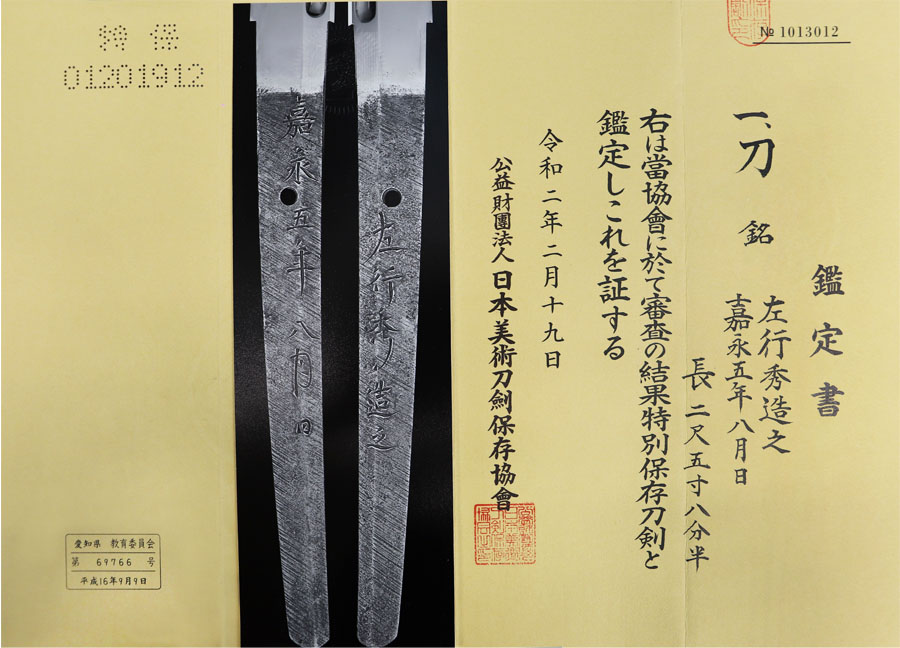 № 1013012
鑑定書
一、刀 銘 左行秀造之
嘉永五年八月日
長 二尺五寸八分半
右は當協會に於て審査の結果特別保存刀剣と
鑑定しこれを証する
令和二年二月十九日
公益財團法人 日本美術刀劍保存協會
左行秀造之
嘉永五年八月日
特 保
01201912
愛知県 教育委員会
第 69766 号
平成16年9月9日